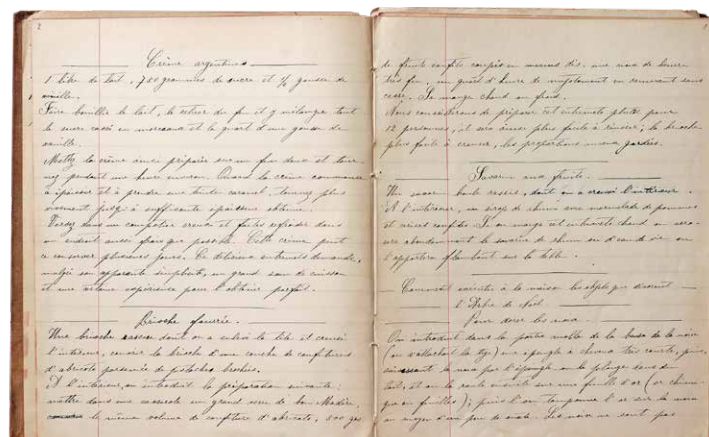 2
Crème argentine
1 litre de lait, 750 grammes de sucre et 1/4 gousse de
vanille.
Faire bouillir le lait, le retirer du feu et y mélanger tout
le sucre cassé en morceaux et le quart d'une gousse de
vanille.
Mettez la crème ainsi préparée sur un feu doux et tour-
nez pendant une heure environ. Quand la crème commence
à épaissir et à prendre une teinte caramel, tournez plus
vivement jusqu'à suffisante épaisseur obtenue.
Versez dans un compotier creux et faites refroidir dans
un endroit aussi frais que possible. Cette crème peut
se conserver plusieurs jours. Ce délicieux entremets demande,
malgré son apparente simplicité, un grand soin de cuisson
et une certaine expérience pour l'obtenir parfait.
Brioche fourrée.
Une brioche dont on a enlevé la tête et creusé
l'intérieur, couvrir la brioche d'une couche de confitures
d'abricots parsemée de pistaches hachées.
A l'intérieur, on introduit la préparation suivante :
mettre dans une casserole un grand verre de bon Madère,
le même volume de confiture d'abricots, 500 grs
de fruits confits coupés en menus dés, une noix de beurre
très fin, un quart d'heure de mijotement en remuant sans
cesse. Se mange chaud ou froid.
Nous conseillerons de préparer cet entremets plutôt pour
12 personnes, il sera ainsi plus facile à réussir ; la brioche
plus facile à creuser, les proportions mieux gardées.
Savarin aux fruits.
Un savarin rassis, dont on a creusé l'intérieur.
A l'intérieur, un sirop de rhum une marmelade de pommes
et cerises confites. Si on mange cet entremets chaud on arro-
sera abondamment le savarin de rhum ou d'eau de vie on
l'apportera flambant sur la table.
Comment à la maison les objets qui
l'Arbre de Noël.
Pour dorer les noix.
On introduit dans la partie molle de la base de la noix
(où s'attachait la tige) une épingle à cheveux très courte, puis,
la noix par l'épingle on la plonge dans du
lait, et on la roule ensuite sur une feuille d'or (or
en feuilles) ; puis l'on tamponne l'or sur la noix
au moyen d'un peu de ouate. Les noix ne sont pas